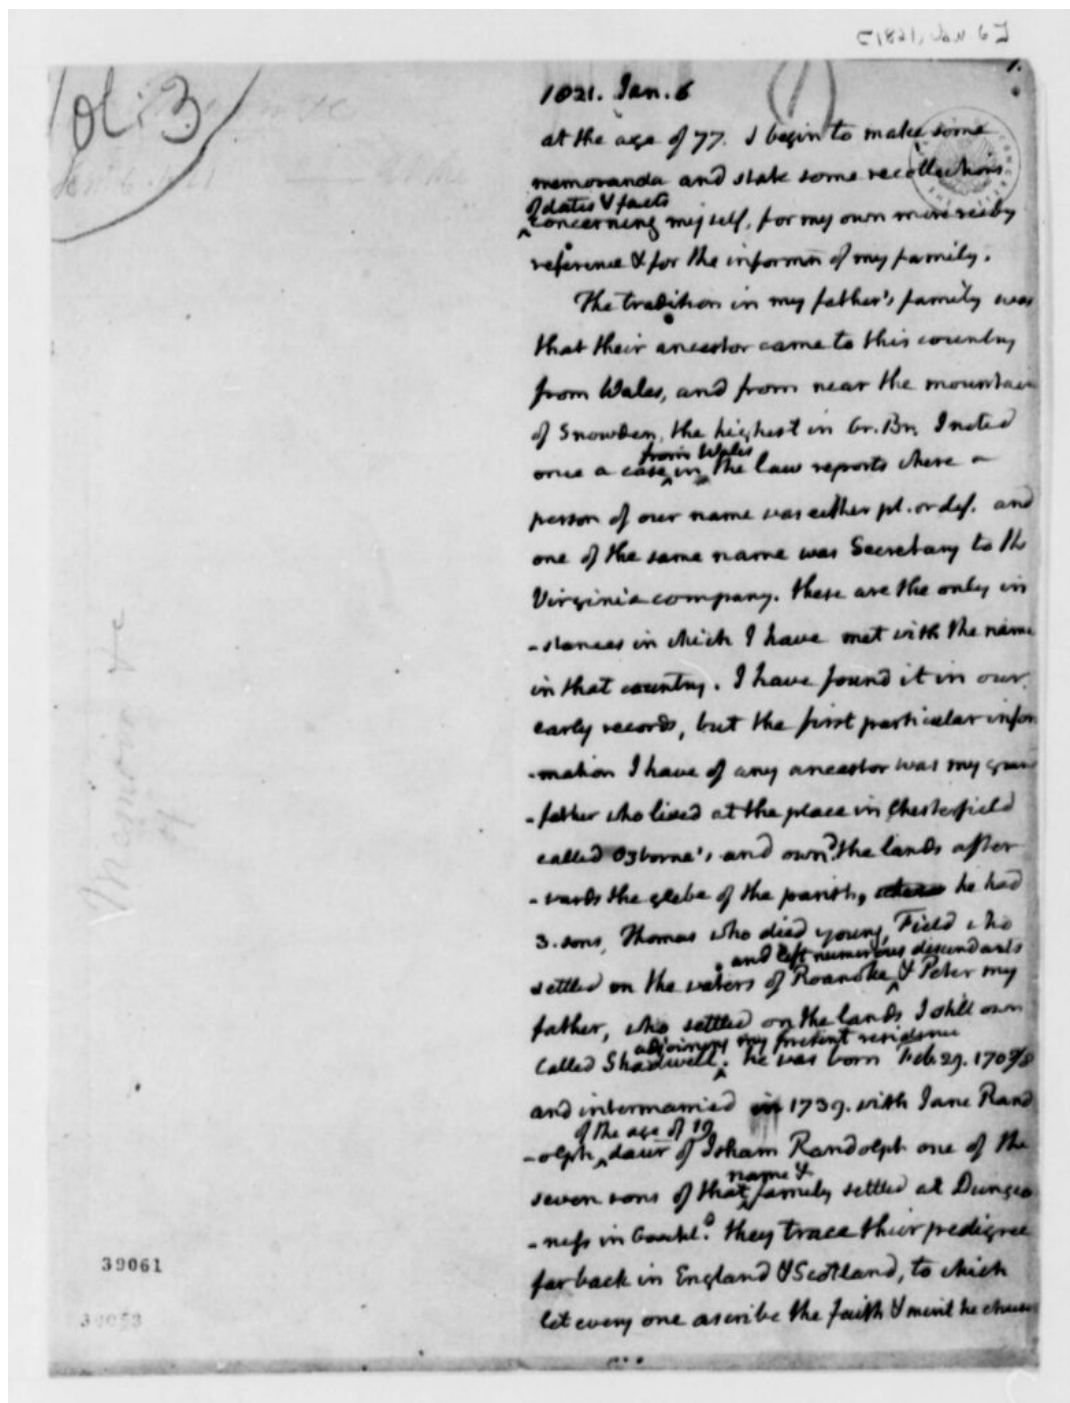 Vol: 3
1.
1821. Jan. 6
at the age of 77. I begin to make some
memoranda and state some recollections
of dates & facts
concerning myself, for my own more ready
reference & for the informn of my family.
The tradition in my father's family was
that their ancestor came to this country
from Wales, and from near the mountain
of Snowden, the highest in Gr. Br. I noted
from Wales
once a case in the law reports where a
person of our name was either pl. or def. and
one of the same name was Secretary to the
Virginia company. these are the only in
-stances in which I have met with the name
in that country. I have found it in our
early records, but the first particular infor
-mation I have of any ancestor was my grand
-father who lived at the place in Chesterfield
called Ozborne's and ownd. the lands after
-wards the glebe of the parish, he had
3. sons, Thomas who died young, Field who
and left numerous descendants
settled on the waters of Roanoke & Peter my
father, who settled on the lands I still own
adjoining my present residence
called Shadwell. he was born Feb. 29. 1707/8
and intermarried in 1739. with Jane Rand
of the age of 19
-olph daur of Isham Randolph one of the
name &
seven sons of that family settled at Dungeo
-ness in Goochld. they trace their pedigree
far back in England & Scotland, to which
let every one ascribe the faith & merit he chuses
Memoir &c
of
39061